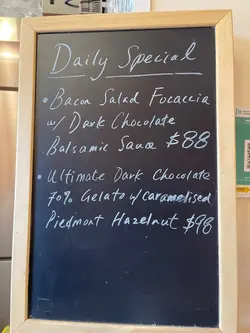 Daily Special
• Bacon Salad Focaccia
w/ Dark Chocolate
Balsamic Sauce $88
• Ultimate Dark Chocolate
70% Gelato w/ Caramelised
Piedmont Hazelnut $98